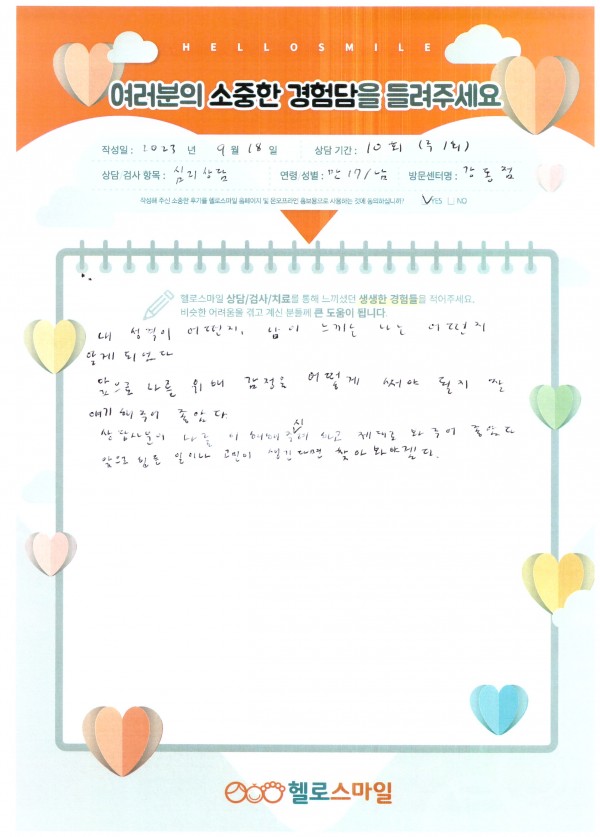 HELLOSMILE
여러분의 소중한 경험담을 들려주세요
작성일 : 2023 년 9 월 18 일 상담 기간 : 10회 (주 1회)
상담 검사 항목 : 심리상담 연령 성별 : 만 17/남 방문센터명 : 강동점
작성해 주신 소중한 후기를 헬로스마일 홈페이지 및 온오프라인 홍보용으로 사용하는 것에 동의하십니까? ✓YES □NO
헬로스마일 상담/검사/치료를 통해 느끼셨던 생생한 경험들을 적어주세요.
비슷한 어려움을 겪고 계신 분들께 큰 도움이 됩니다.
내 성격이 어떤지, 남이 느끼는 나는 어떤지
알게 되었다
앞으로 나를 위해 감정을 어떻게 써야 될지 잘
얘기해주어 좋았다
상담사분이 나를 이해해주시고 제대로 봐주어 좋았다
앞으로 힘든 일이나 고민이 생긴다면 찾아봐야겠다.
헬로스마일